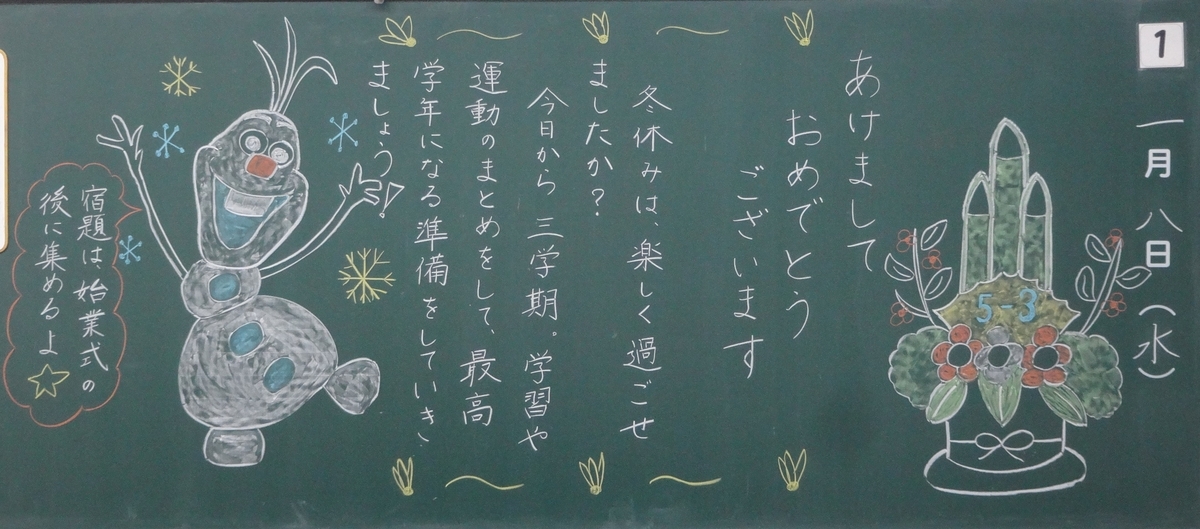 1
一月八日(水)
5-3
あけまして
おめでとう
ございます
冬休みは、楽しく過ごせ
ましたか?
今日から三学期。学習や
運動のまとめをして、最高
学年になる準備をしていき
ましょう!
宿題は、始業式の
後に集めるよ☆